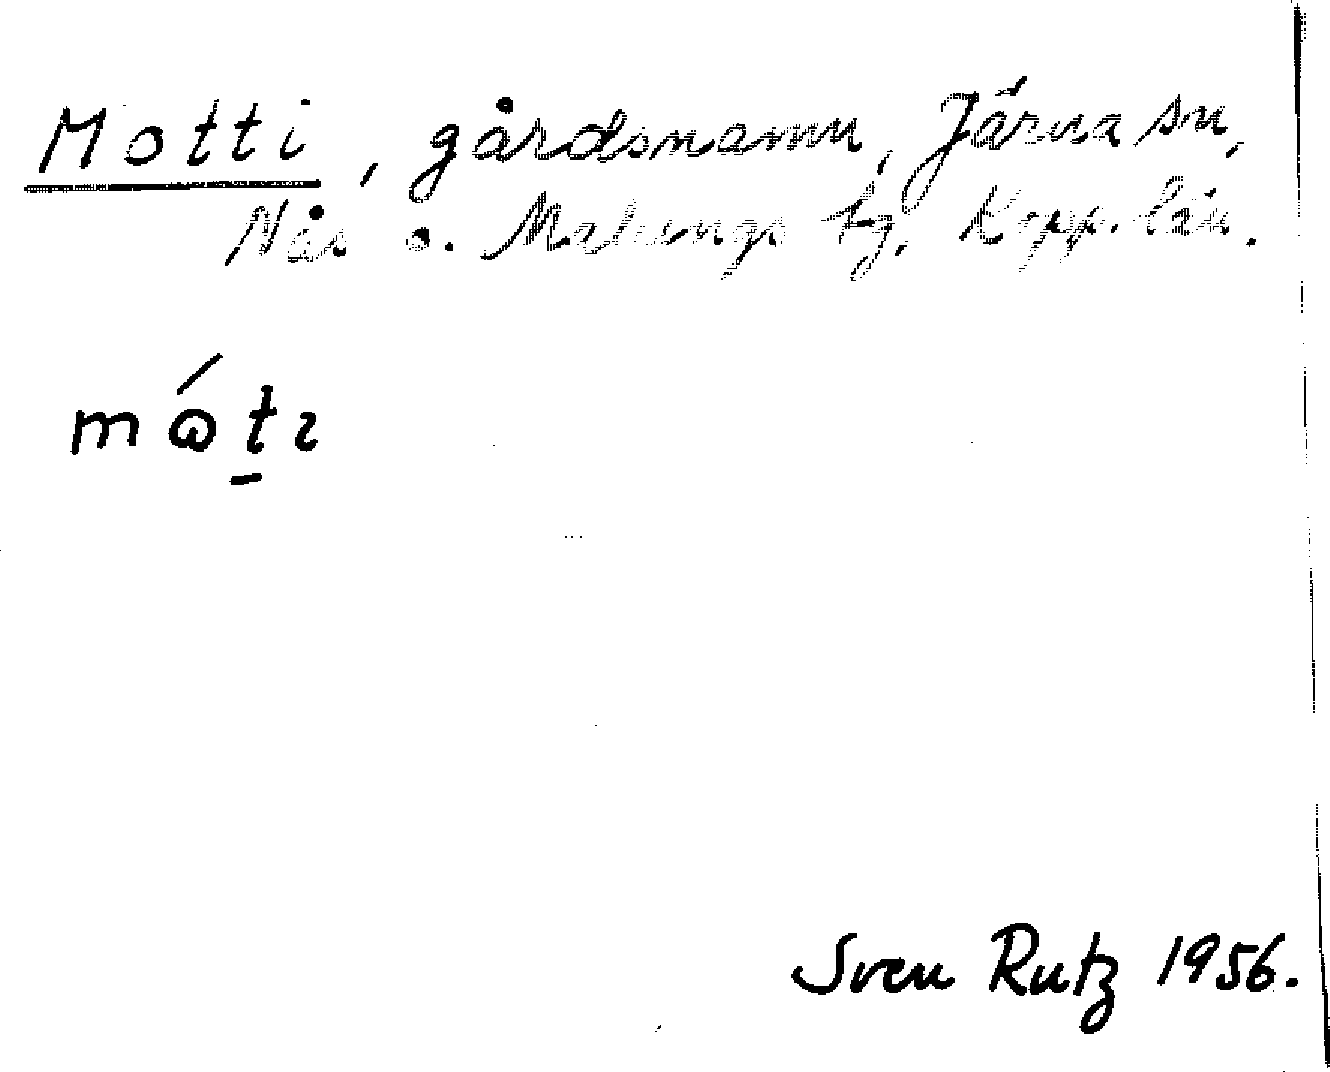 Motti, gårdsnamn, Järna sn,
Nås o. Malungs tg, Kopp. län.
mó̱ṯɩ
Sven Rutz 1956.